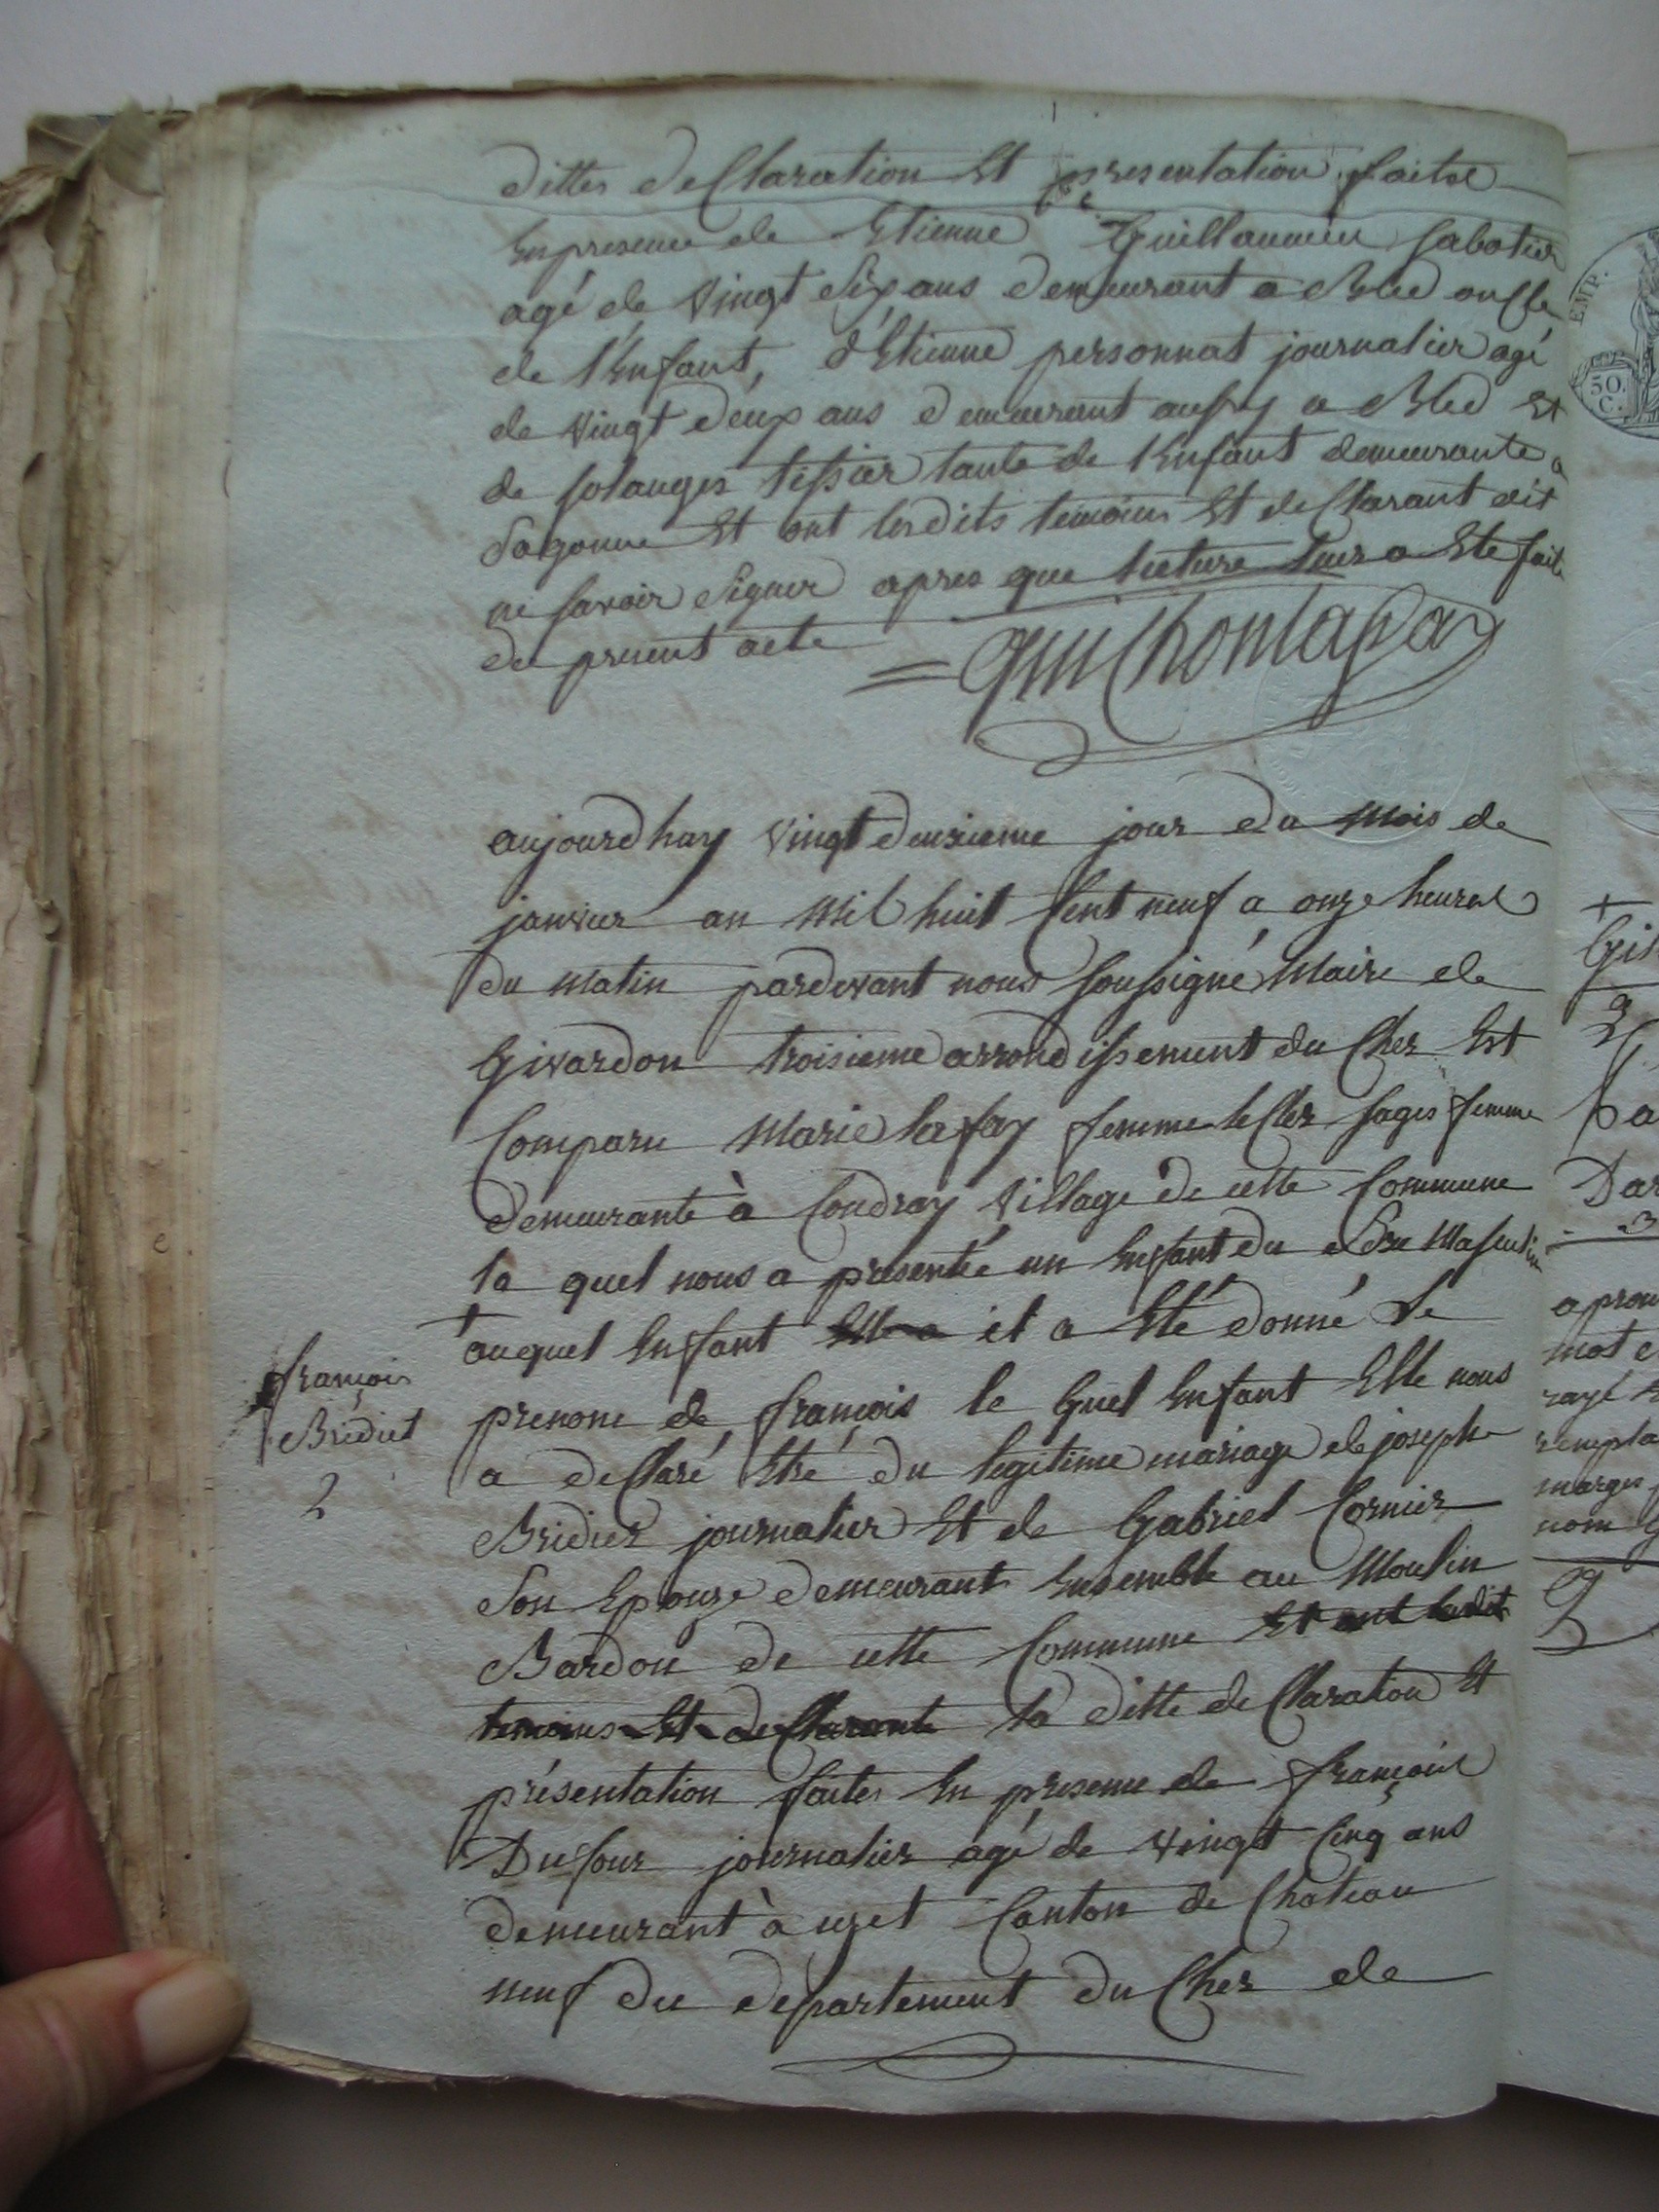 dittes declaration Et presentation faite
En presence de Etienne Guillaumin sabotier
agé de vingt Six ans demeurant a Bled oncle
de l'Enfant, d'Etienne personnat journalier agé
de vingt deux ans demeurant aussy a Bled Et
de solanges tissier tante de l'Enfant demeurante a
Sagonne Et ont lesdits temoins Et declarant dit
ne savoir Signer apres que lecture leur a Ete faite
du present acte
aujourdhuy vingt deusieme jour du mois de
janvier an mil huit Cent neuf a onze heures
du matin pardevant nous soussigné Maire de
Givardon troisieme arrondissement du Cher Est
Comparu Marie lafay femme leCler sages femme
demeurante à Coudray village de cette Commune
la quel nous a presentée un Enfant du Sexe Masculin
+
auquel Enfant Elle a il a Eté donné le
prenom de françois le quel Enfant Elle nous
a declaré Etre du legitime mariage de joseph
Bridier journalier Et de Gabriel Cornier
Son Epouze demeurant Ensemble au Moulin
Bardon de cette Commune Et ont lesdit
temoins Et declarante la ditte declaration Et
présentation faites En presence de françois
Dufour journalier agé de vingt Cinq ans
demeurant à uzet Canton de Chateau
neuf du departement du Cher de
françois
Bridiet
2
EMP.
50
C.
+
Giv
Dar
3
a prou
mot
rayé
rempla
marges
nom